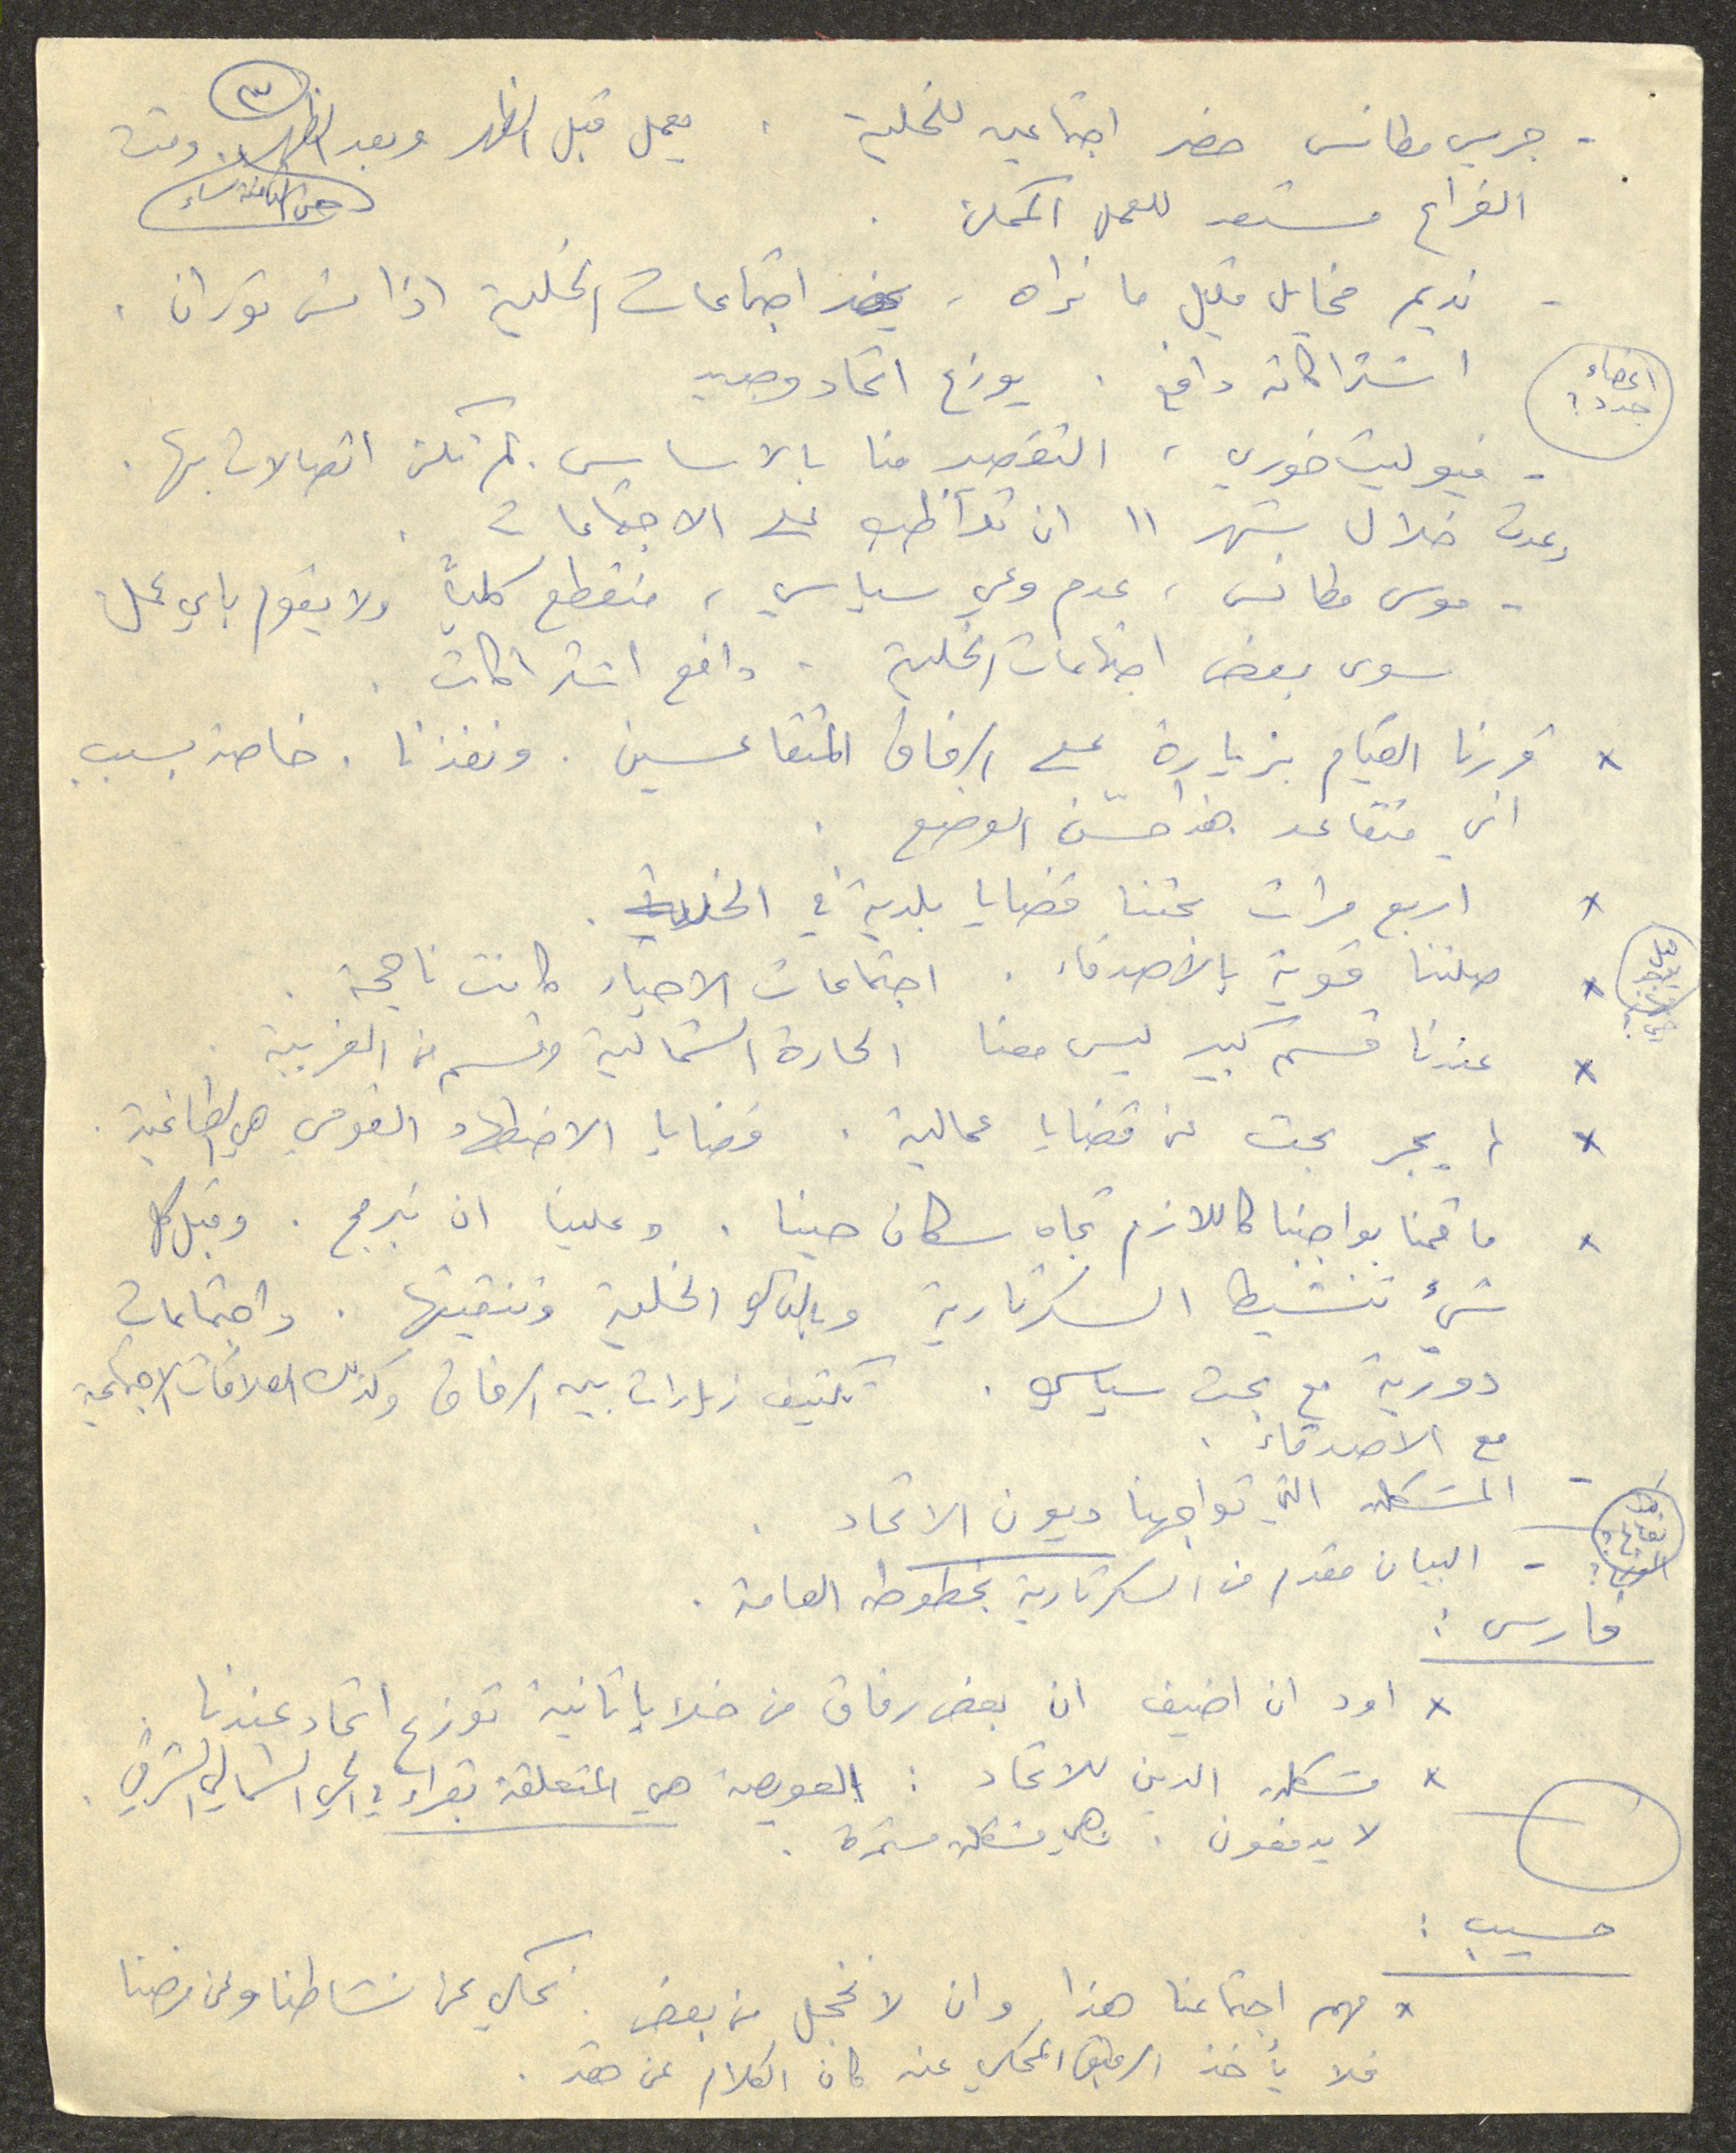 ٣
- جريس مطانس حضر اجتماعين للخلية . يعمل قبل الظهر وبعد الظهر . وقت
حتى الثامنة مساء
الفراغ مستعد للعمل الممكن .
- نديم مخايل قليل ما نراه ، يحضر اجتماعات الخلية اذا مش توران .
اشتراكاته دافع . يوزع اتحاد وجديد
اعضاء
جدد ؟
- فيوليت خوري ، التقصير منا بالاساس . لم تكن اتصالات بها .
وعدت خلال شهر ١١ ان تواظب على الاجتماعات .
- موسى مطانس ، عدم وعي سياسي ، منقطع كلياً ولا يقوم باي عمل
سوى بعض اجتماعات الخلية . دافع اشتراكات .
× قررنا القيام بزيارة على الرفاق المتقاعسين . ونفذنا . خاصة بسبب
اني متقاعد هذا حسّن الوضع .
× اربع مرات بحثنا قضايا بلدية في الخلية .
× صلتنا قوية بالاصدقاء . اجتماعات الاحياء كانت ناجحة .
× عندنا قسم كبير ليس معنا الحارة الشمالية وقسم من الغربية .
× لم يجر بحث عن قضايا عمالية . قضايا الاضطهاد القومي هي الطاغية .
× ما قمنا بواجبنا كاللازم تجاه سكان حينا . وعلينا ان نبرمج . وقبل كل
شيء تنشيط السكرتارية وبالتالي الخلية وتنقيتها . واجتماعات
دورية مع بحث سياسي . تكثيف زيارات بين الرفاق وكذلك العلاقات الاجتماعية
مع الاصدقاء .
- المشكلة التي تواجهنا ديون الاتحاد .
- البيان مقدم من السكرتارية بخطوطه العامة .
فارس :
× اود ان اضيف ان بعض رفاق من خلايا ثانية توزع اتحاد عندنا .
× مشكلة الدين للاتحاد : العويصة هي المتعلقة بقراء في الحي الشمالي الشرقي .
لا يدفعون . وهي مشكلة مستمرة .
حسيب :
× مهم اجتماعنا هذا وان لا نخجل من بعض . نحكي عن نشاطنا وعن مرضنا
فلا يأخذ الرفيق المحكي عنه كان الكلام عن حقد .